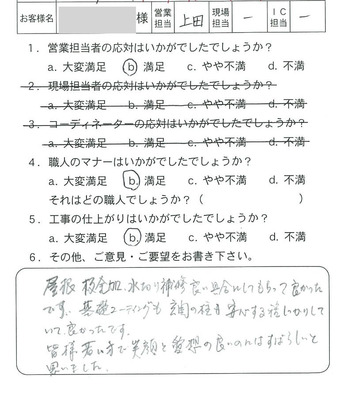 お客様名 様 営業担当 上田 現場担当 ー IC担当 ー
1．営業担当者の応対はいかがでしたでしょうか？
a. 大変満足 b. 満足 c. やや不満 d. 不満
2．現場担当者の応対はいかがでしたでしょうか？
a. 大変満足 b. 満足 c. やや不満 d. 不満
3．コーディネーターの応対はいかがでしたでしょうか？
a. 大変満足 b. 満足 c. やや不満 d. 不満
4．職人のマナーはいかがでしたでしょうか？
a. 大変満足 b. 満足 c. やや不満 d. 不満
それはどの職人でしょうか？（ ）
5．工事の仕上がりはいかがでしたでしょうか？
a. 大変満足 b. 満足 c. やや不満 d. 不満
6．その他、ご意見・ご要望をお書き下さい。
屋根 板金加 水切り補修 良い具合にしてもらって良かった
です。基礎コーティングも玄関の柱も しっかりして
いて良かったです。
皆様若い方で笑顔と愛想の良いのにはすばらしいと
思いました。